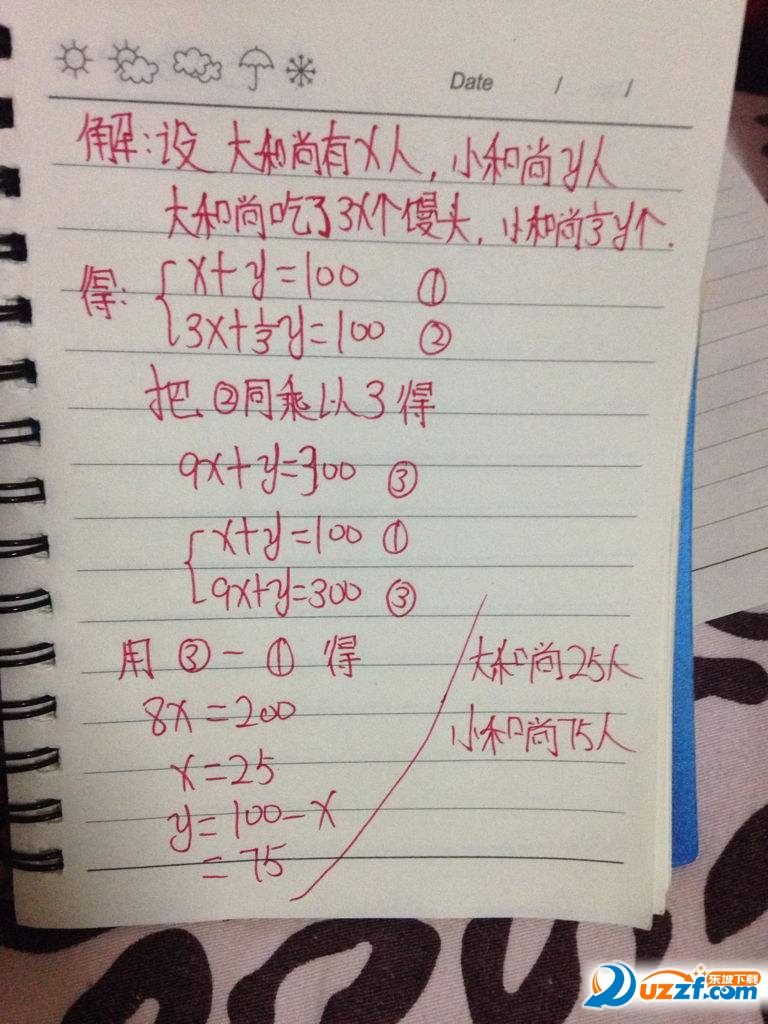 Date / /
解:设 大和尚有x人,小和尚y人
大和尚吃了3x个馒头,小和尚⅓y个.
得: { x+y=100 ①
3x+⅓y=100 ②
把②同乘以3得
9x+y=300 ③
{ x+y=100 ①
9x+y=300 ③
用 ③-① 得
8x=200
x=25
y=100-x
=75
大和尚25人
小和尚75人
东坡下载
uzzf.com